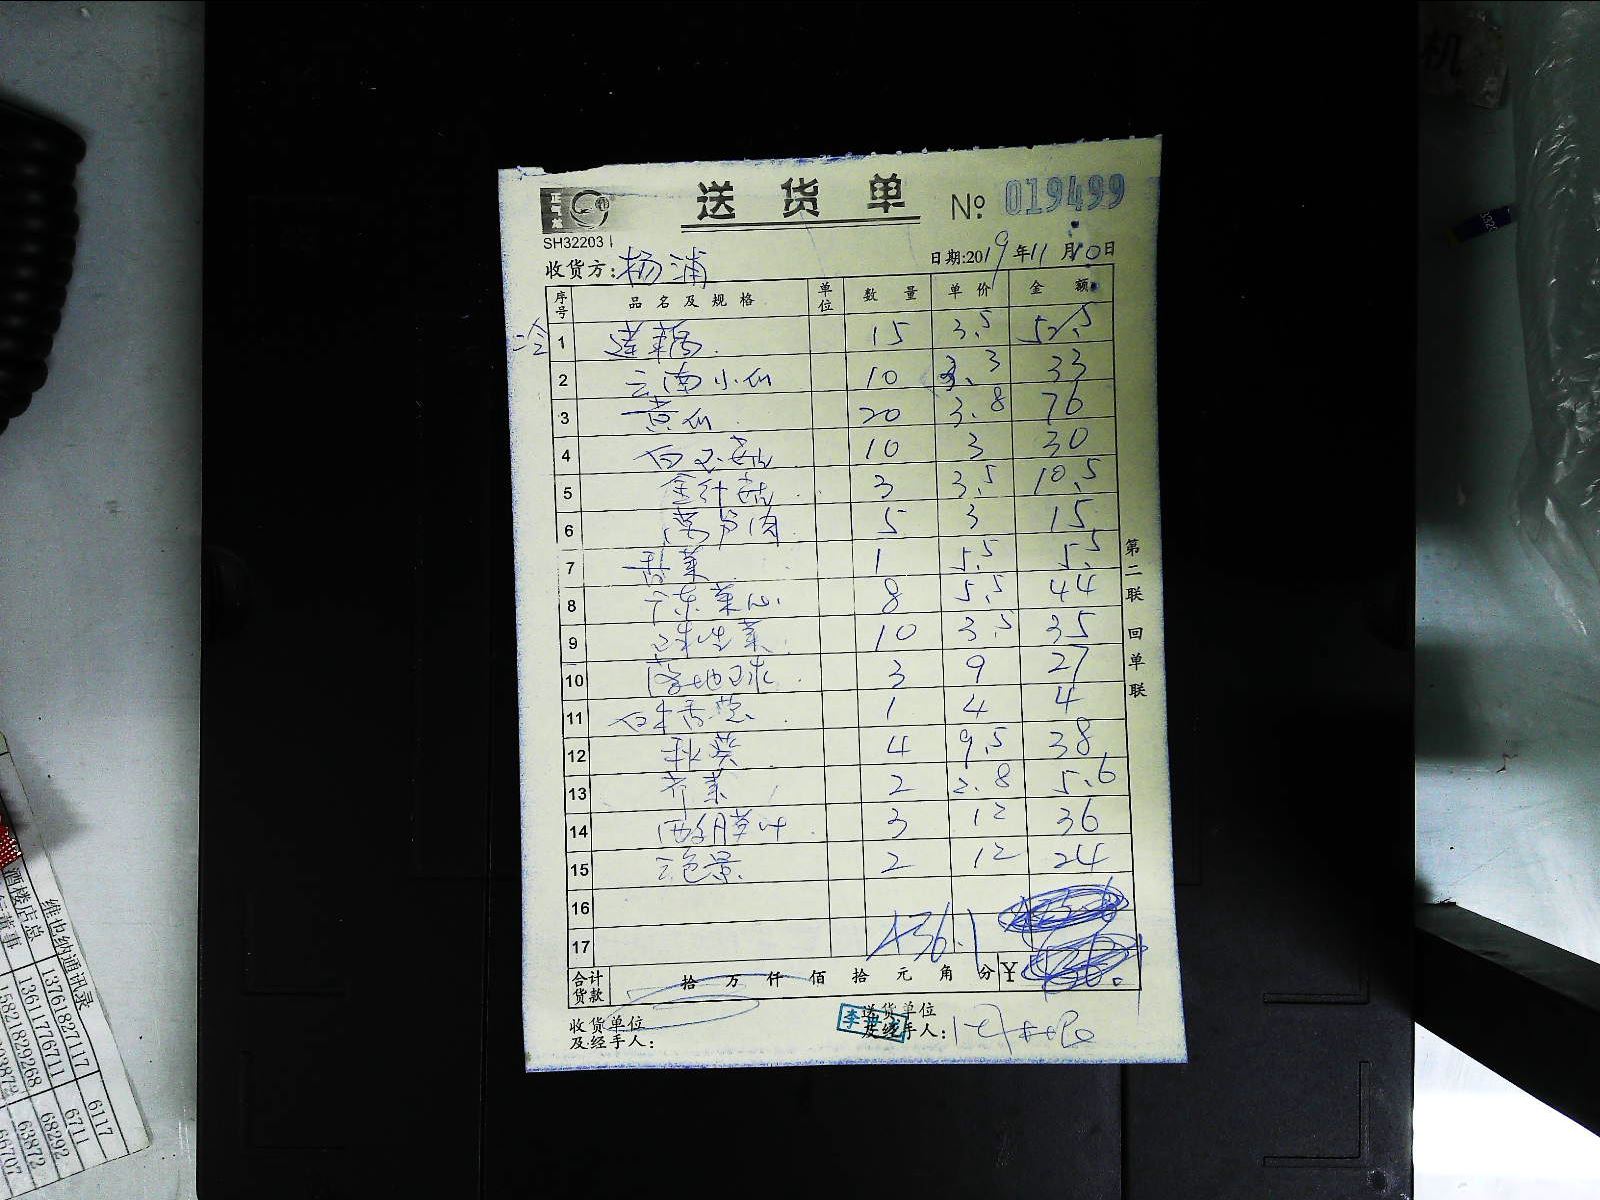 送货单 № 019499
SH32203
收货方:杨浦 日期:2019年11月10日
序号 品名及规格 单位 数量 单价 金额
冷 1 莲藕 15 3.5 52.5
2 云南小瓜 10 3.3 33
3 黄瓜 20 3.8 76
4 白玉菇 10 3 30
5 金针菇 3 3.5 10.5
6 莴笋肉 5 3 15
7 香菜 1 5.5 5.5
8 广东菜心 8 5.5 44
9 球生菜 10 3.5 35
10 3 9 27
11 1 4 4
12 秋葵 4 9.5 38
13 芹菜 2 2.8 5.6
14 3 12 36
15 三色堇 2 12 24
16
17 436.1
合计货款 拾 万 仟 佰 拾 元 角 分 ¥
收货单位及经手人:
送货单位及经手人:
第二联 回单联
维也纳通讯录
酒楼店总 13761827117 6117
13611776711 6711
15821829268 68292
63872
66707
机